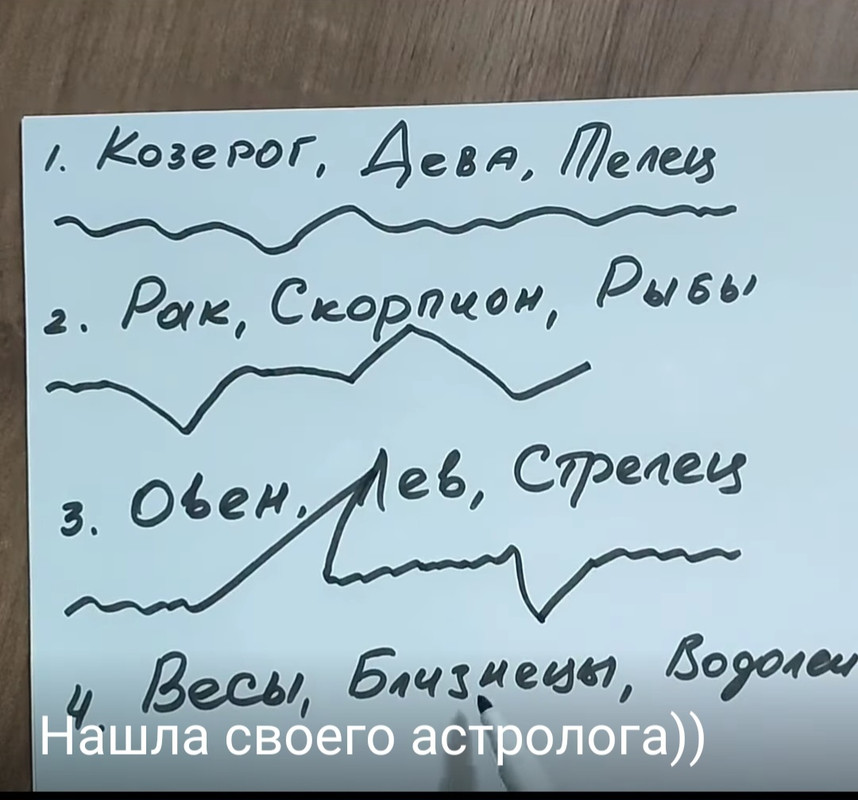 1. Козерог, Дева, Телец
2. Рак, Скорпион, Рыбы
3. Овен, Лев, Стрелец
4. Весы, Близнецы, Водолеи
Нашла своего астролога))